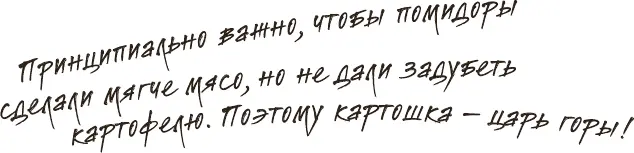 Принципиально важно, чтобы помидоры
сделали мягче мясо, но не дали задубеть
картофелю. Поэтому картошка – царь горы!